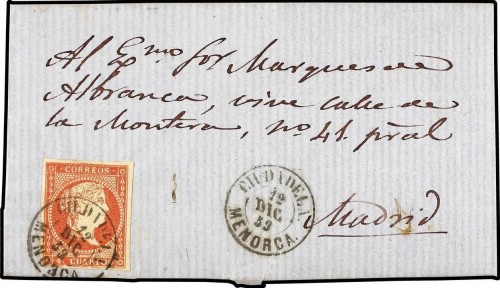 Al Exmo Sor Marques de
Albranca, vive calle de
la Montera, no. 41. pral
Madrid
CORREOS
4 CUARTOS
CIUDADELA
12
DIC
59
MENORCA
CIUDADELA.
12
DIC.
59
MENORCA.